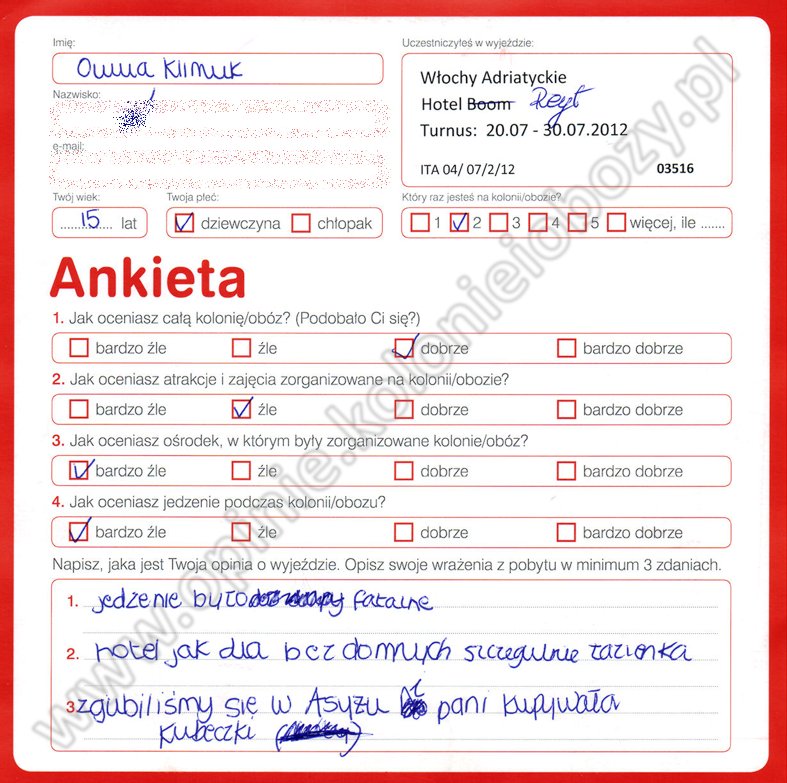 Imię:
Oliwia Klimuk
Nazwisko:
e-mail:
Twój wiek:
15 lat
Twoja płeć:
dziewczyna chłopak
Uczestniczyłeś w wyjeździe:
Włochy Adriatyckie
Hotel Boom Reyt
Turnus: 20.07 - 30.07.2012
ITA 04/ 07/2/12 03516
Który raz jesteś na kolonii/obozie?
1 2 3 4 5 więcej, ile .......
Ankieta
1. Jak oceniasz całą kolonię/obóz? (Podobało Ci się?)
bardzo źle źle dobrze bardzo dobrze
2. Jak oceniasz atrakcje i zajęcia zorganizowane na kolonii/obozie?
bardzo źle źle dobrze bardzo dobrze
3. Jak oceniasz ośrodek, w którym były zorganizowane kolonie/obóz?
bardzo źle źle dobrze bardzo dobrze
4. Jak oceniasz jedzenie podczas kolonii/obozu?
bardzo źle źle dobrze bardzo dobrze
Napisz, jaka jest Twoja opinia o wyjeździe. Opisz swoje wrażenia z pobytu w minimum 3 zdaniach.
1. jedzenie było fatalne
2. hotel jak dla bezdomnych szczegulnie łazienka
3. zgubiliśmy się w Asyżu bo pani kupywała
kubeczki
www.opinie.kolonieiobozy.pl